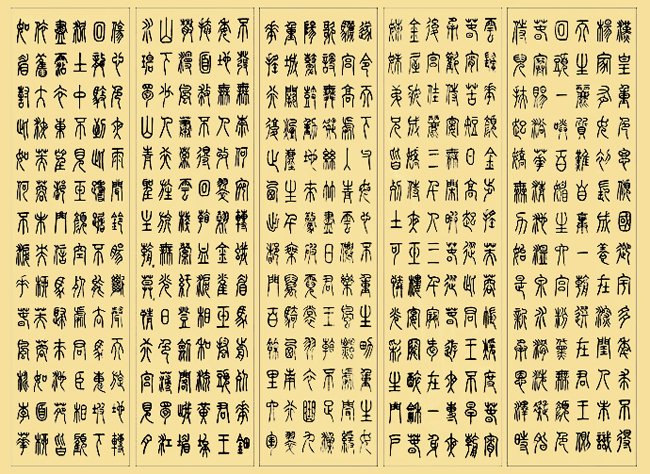 漢皇重色思傾國御宇多年求不得
楊家有女初長成養在深閨人未識
天生麗質難自棄一朝選在君王側
回眸一笑百媚生六宮粉黛無顏色
春寒賜浴華清池溫泉水滑洗凝脂
侍兒扶起嬌無力始是新承恩澤時
雲鬢花顏金步搖芙蓉帳暖度春宵
春宵苦短日高起從此君王不早朝
承歡侍宴無閒暇春從春遊夜專夜
後宮佳麗三千人三千寵愛在一身
金屋妝成嬌侍夜玉樓宴罷醉和春
姊妹弟兄皆列土可憐光彩生門戶
遂令天下父母心不重生男重生女
驪宮高處入青雲仙樂風飄處聞緩
歌慢舞凝絲竹盡日君王看不足漁
陽鼙鼓動地來驚破霓裳羽衣曲九
重城闕煙塵生千乘萬騎西南行翠
華搖行復止西出都門百餘里六軍
不發無奈何宛轉蛾眉馬前死花鈿
委地無人收翠翹金雀玉搔頭君王
掩面救不得回看血淚相和流黃埃
散漫風蕭索雲棧縈紆登劍閣峨嵋
山下少人行旌旗無光日色薄蜀江
水碧蜀山青聖主朝暮情行宮見月
傷心色夜雨聞鈴腸斷聲天旋地轉
回龍馭到此躊躇不能去馬嵬坡下
泥土中不見玉顏空死處君臣相顧
盡霑衣東望都門信馬歸來池苑皆
依舊太液芙蓉未央柳芙蓉如面柳
如眉對此如何不淚垂春風桃李華